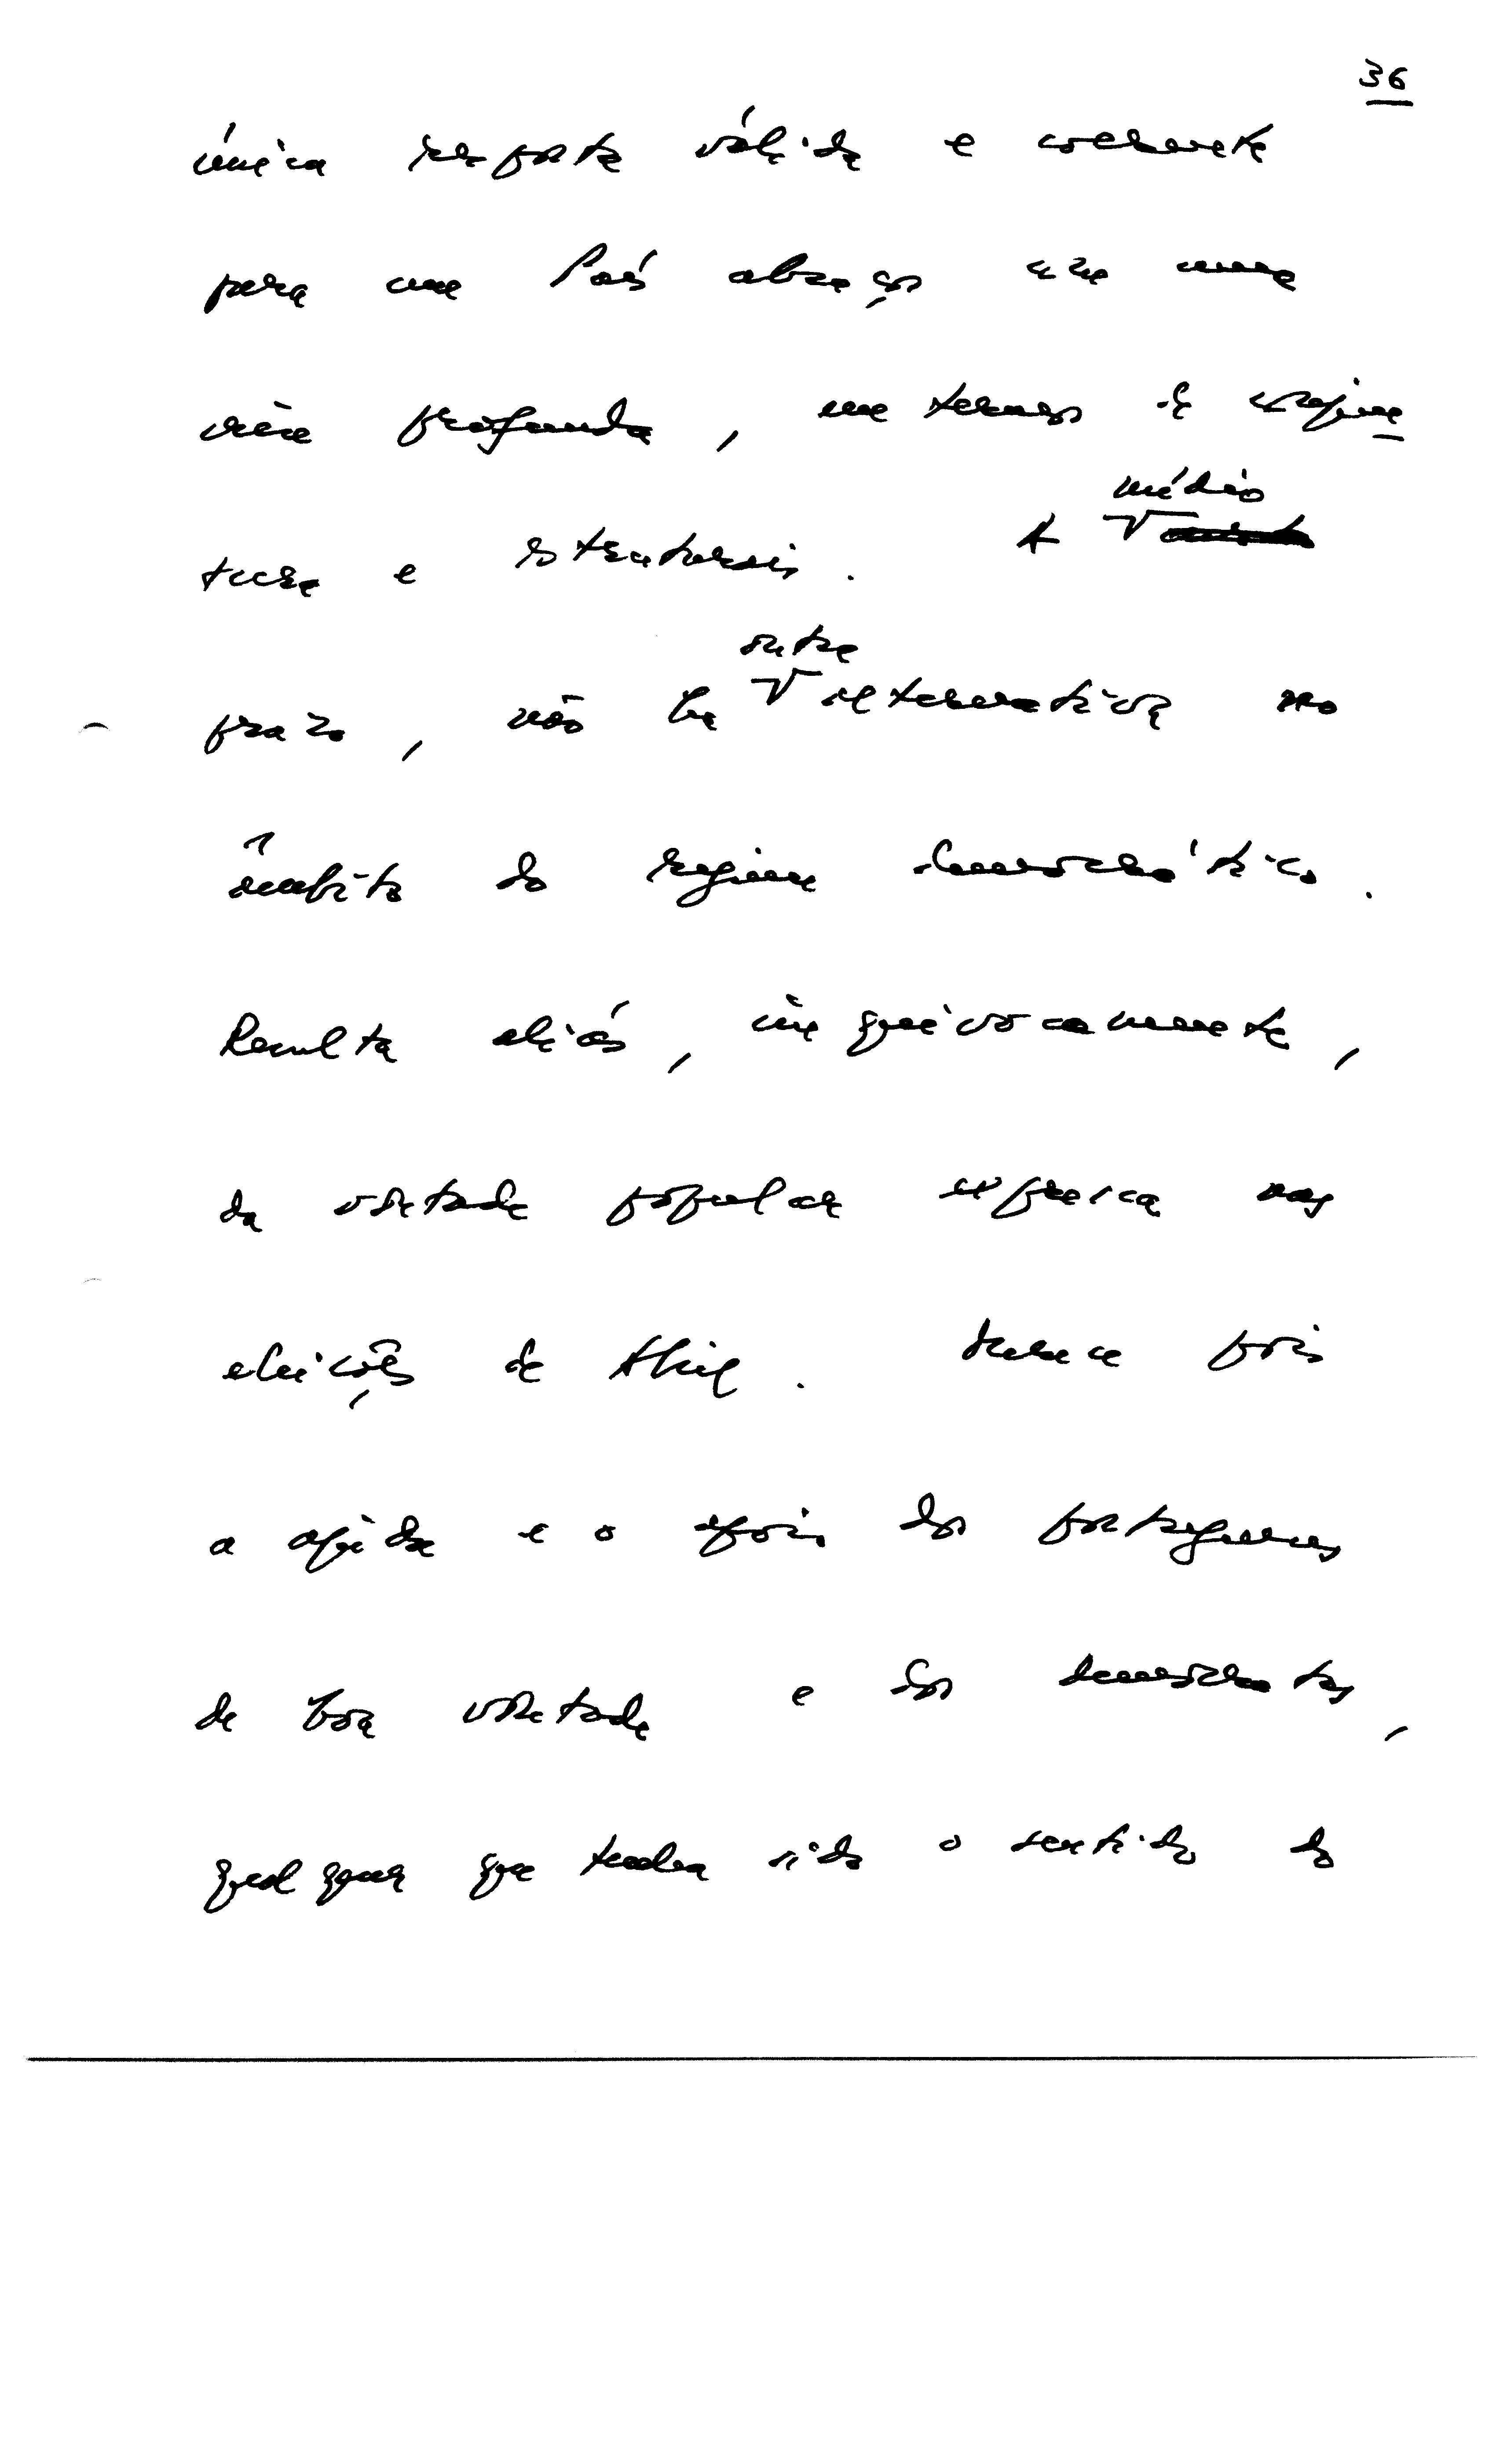 36
única resposta válida e coerente
para um País a braços com uma
crise profunda, em termos de conjun-
tura e estruturais. A médio
prazo, não há outra alternativa no
âmbito do regime democrático.
Resulta aliás, inequivocamente,
da vontade popular expressa nas
eleições de Abril. Merece pois
a ajuda e o apoio dos portugueses
de boa vontade e dos democratas,
qualquer que tenha sido o sentido do